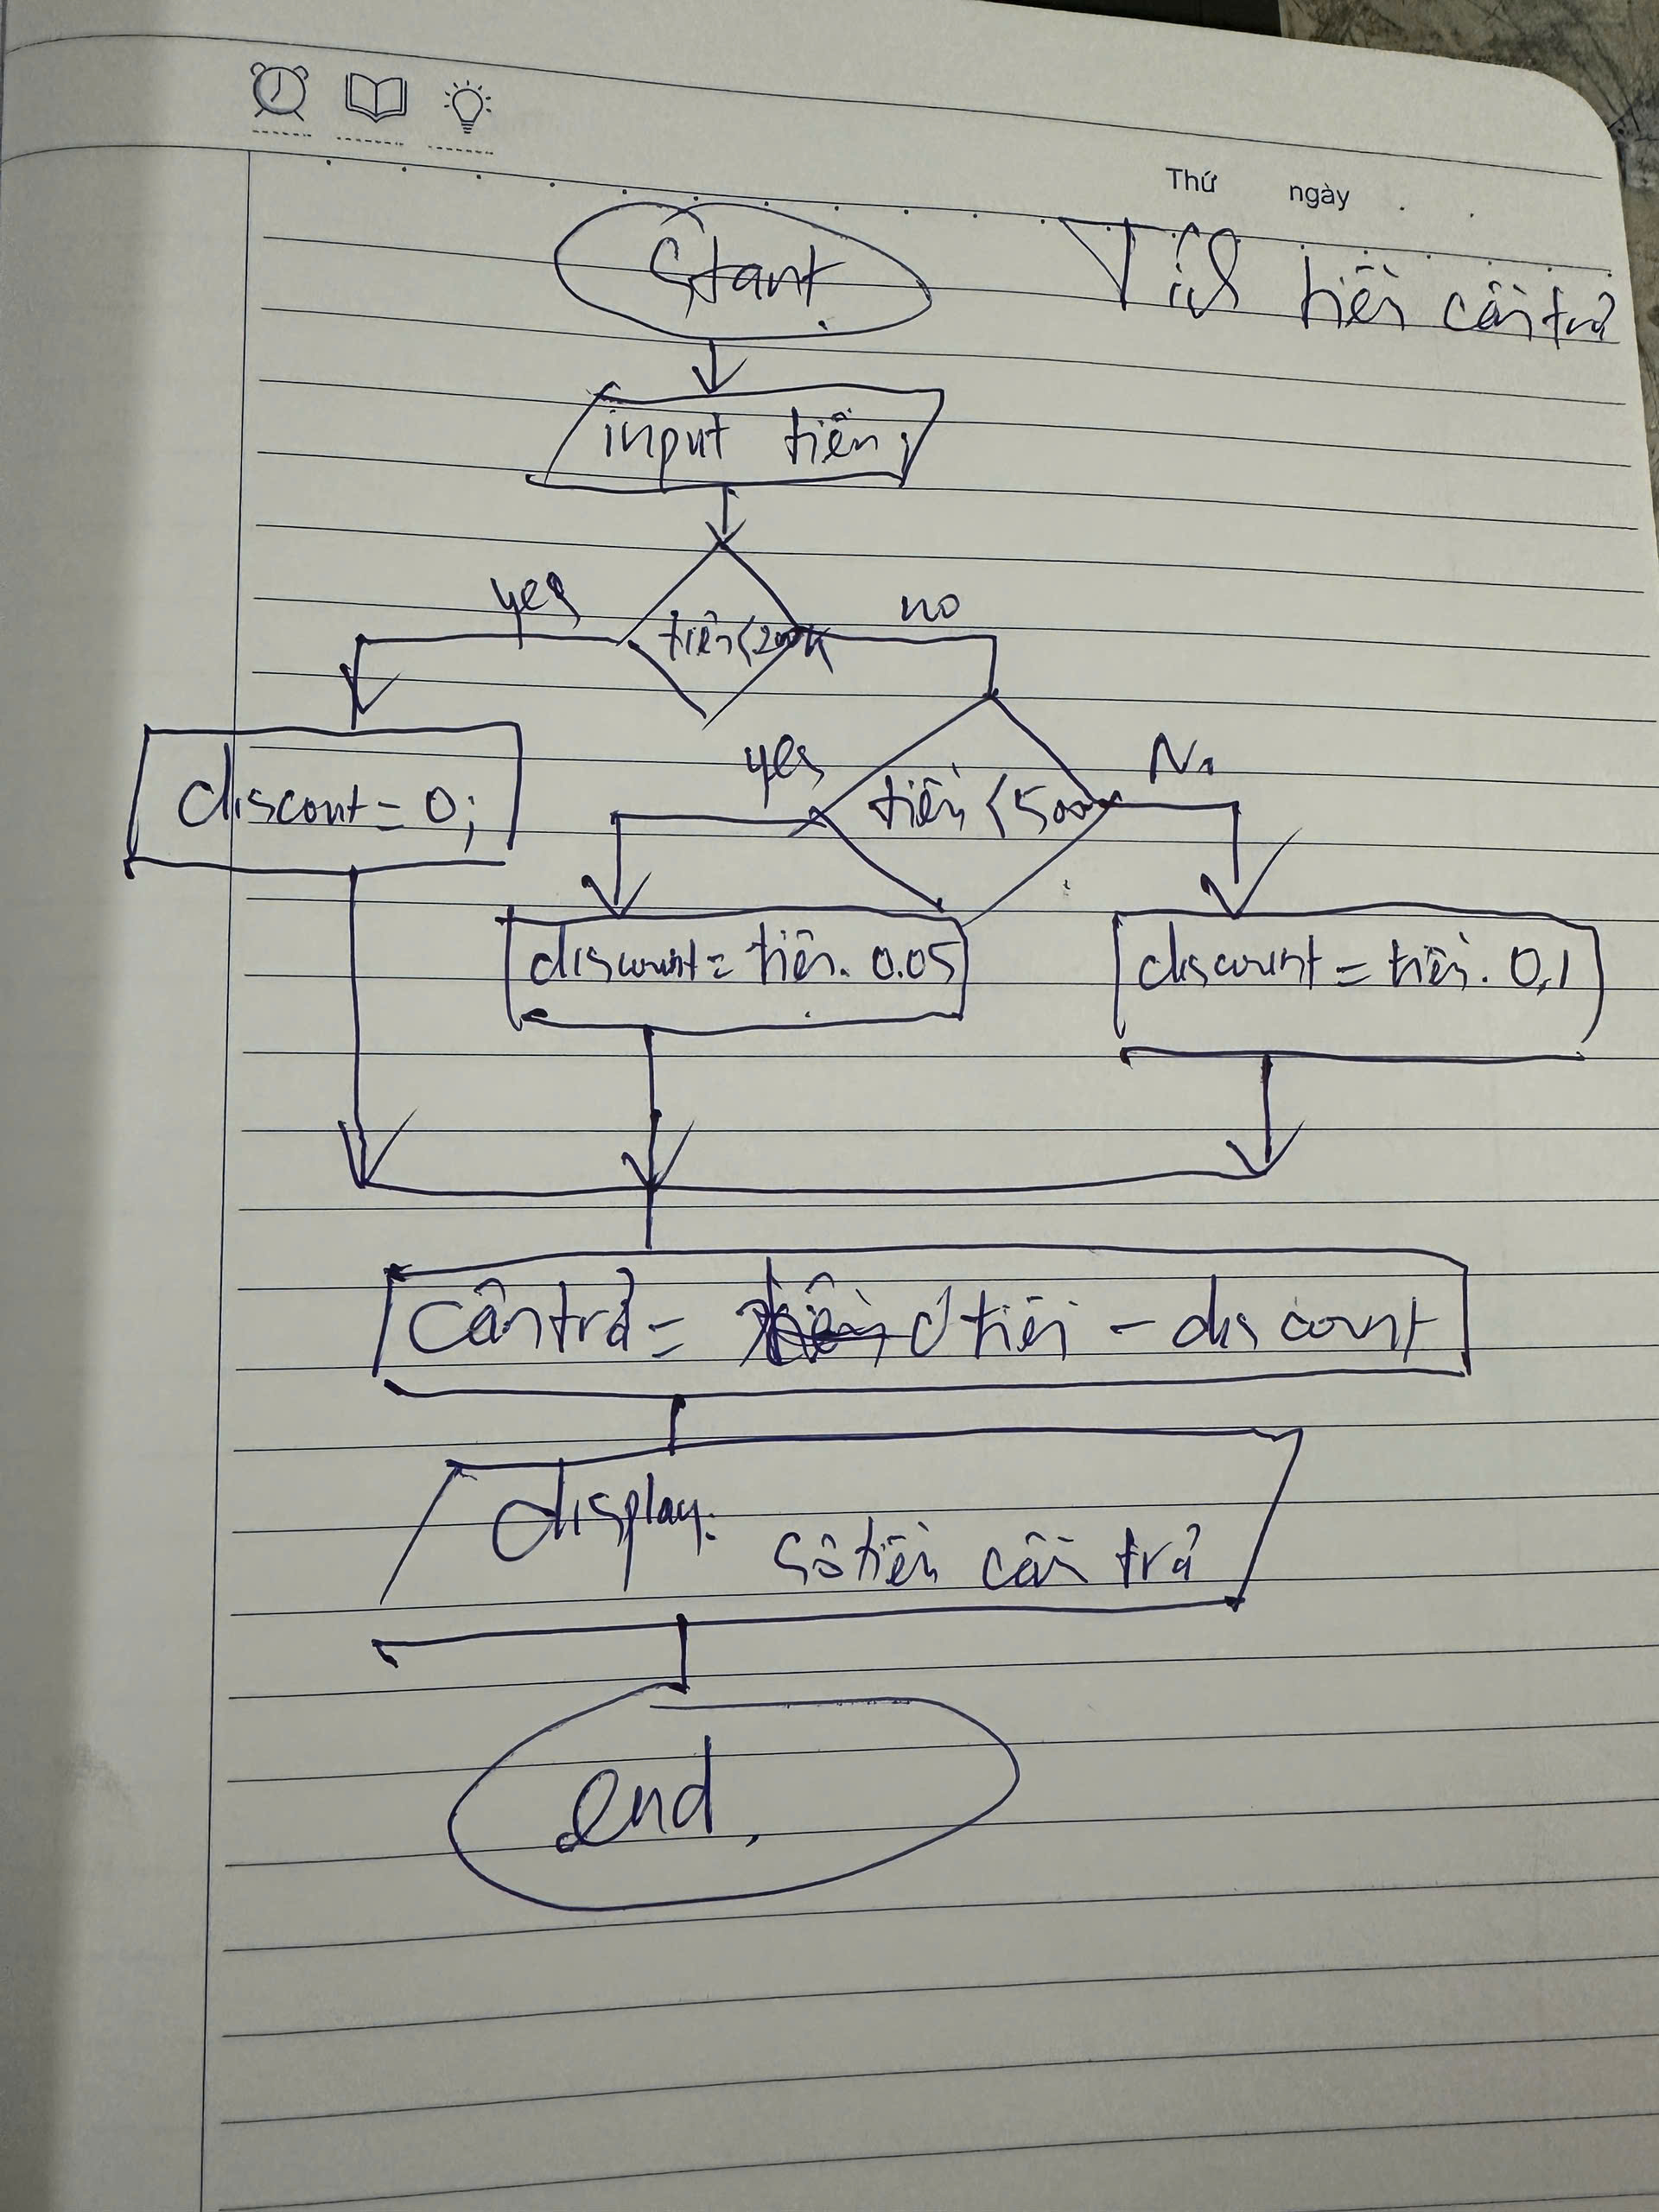 Thứ ngày
Start
Tíh tiền cần trả
input tiền;
yes
no
tiền<200k
discout=0;
yes
No
tiền<500k
discount= tiền. 0.05
discount = tiền. 0,1
cần trả = tiền - discount
display:
số tiền cần trả
end